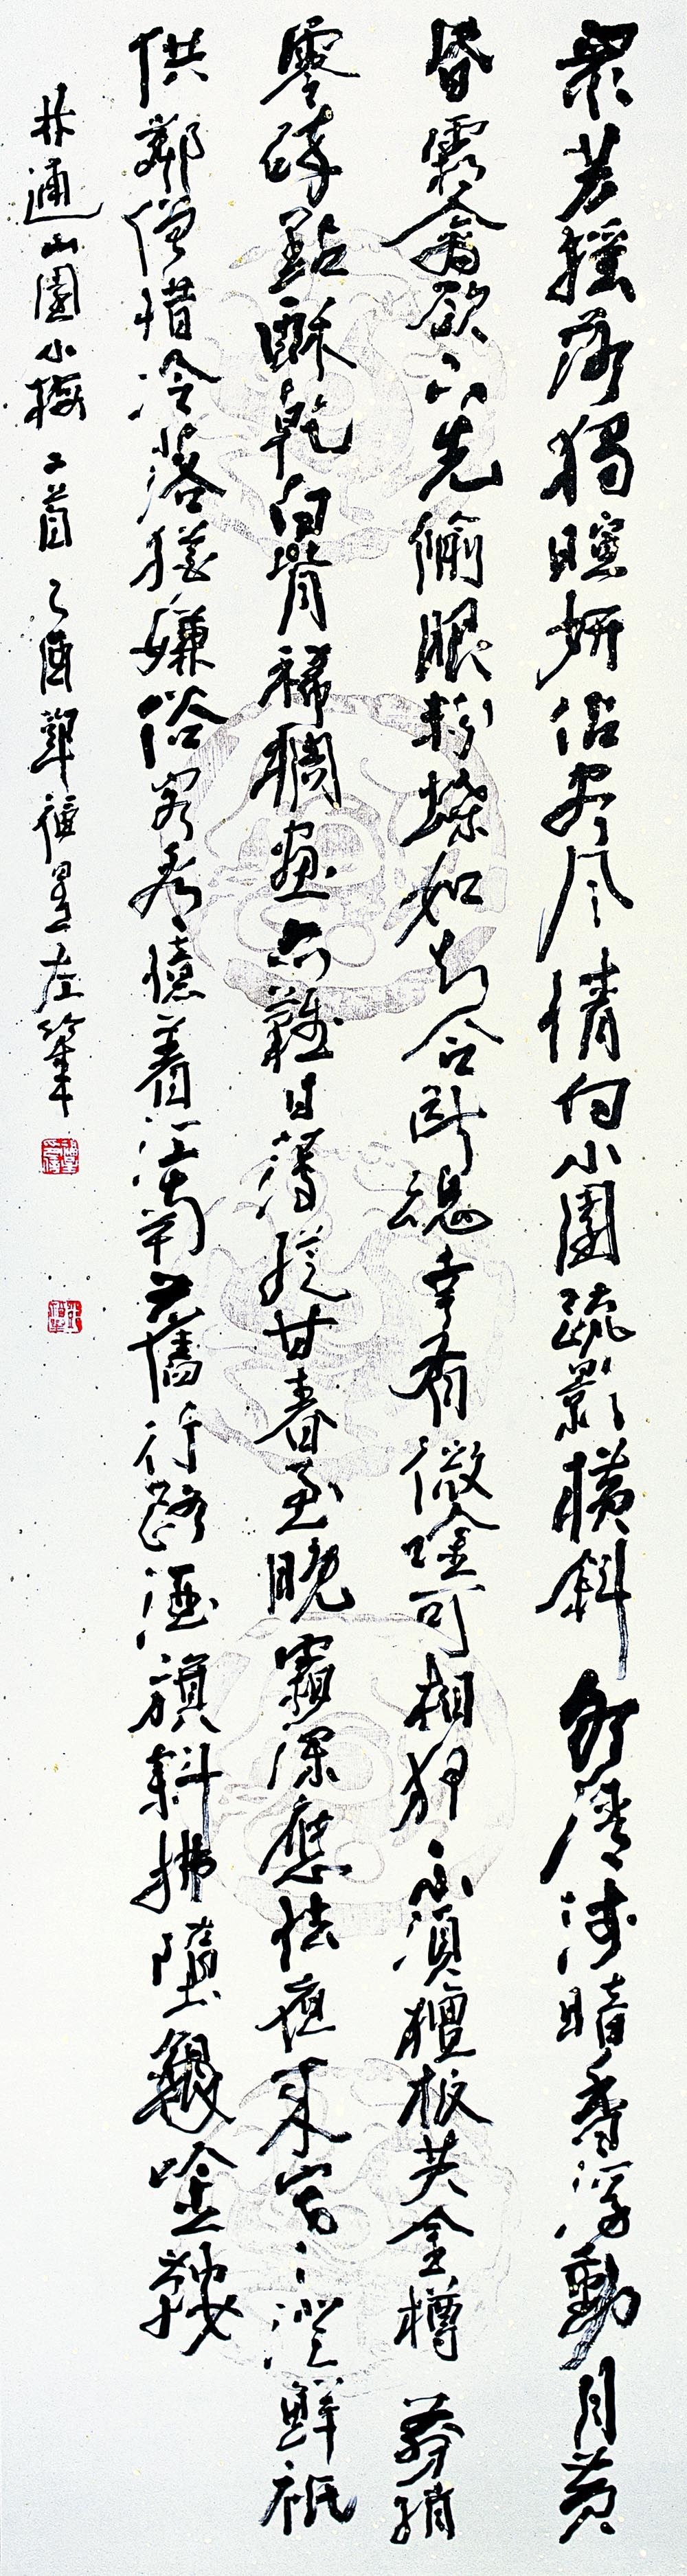 衆芳摇落獨暄妍佔尽风情向小園疏影橫斜水清浅暗香浮動月黄
昏霜禽欲下先偷眼粉蝶如知合断魂幸有微吟可相狎不須檀板共金樽剪綃
零碎點酥乾向背稀稠畫亦難日薄從甘春至晚霜深應怯夜来寒澄鮮祇
供鄰僧惜冷落猶嫌俗客看憶着江南舊行路酒旗斜拂墮吟鞍
林逋山園小梅二首乙酉左筆